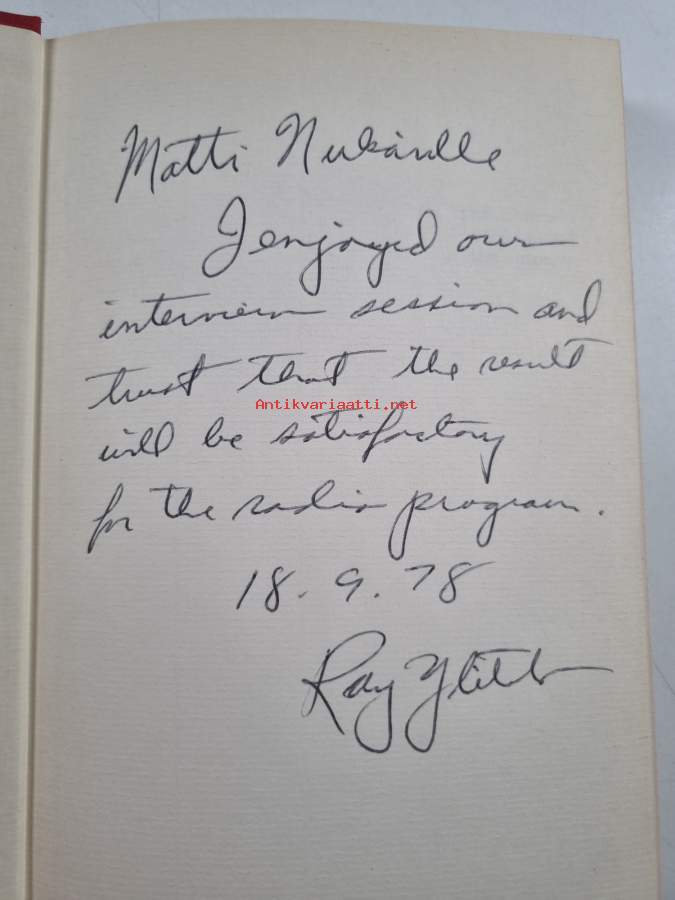 Matti
I enjoyed our
interview session and
trust that the result
Antikvariaatti.net
will be satisfactory
for the radio program.
18.9.78
Ray